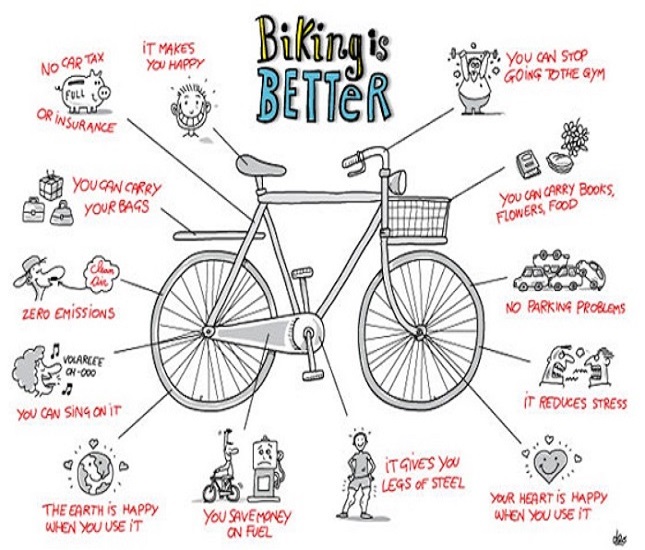 Biking is
BETTER
NO CAR TAX
FULL
OR INSURANCE
iT MAKES
YOU HAPPY
YOU CAN STOP
GOING TO THE GYM
YOU CAN CARRY
YOUR BAGS
YOU CAN CARRY BOOKS,
FLOWERS, FOOD
Clean
Air
ZERO EMISSIONS
NO PARKING PROBLEMS
VOLARLEE
OH-OOO
YOU CAN SING ON iT
iT REDUCES STRESS
THE EARTH IS HAPPY
WHEN YOU USE iT
YOU SAVE MONEY
ON FUEL
iT GIVES YOU
LEGS OF STEEL
YOUR HEART IS HAPPY
WHEN YOU USE iT